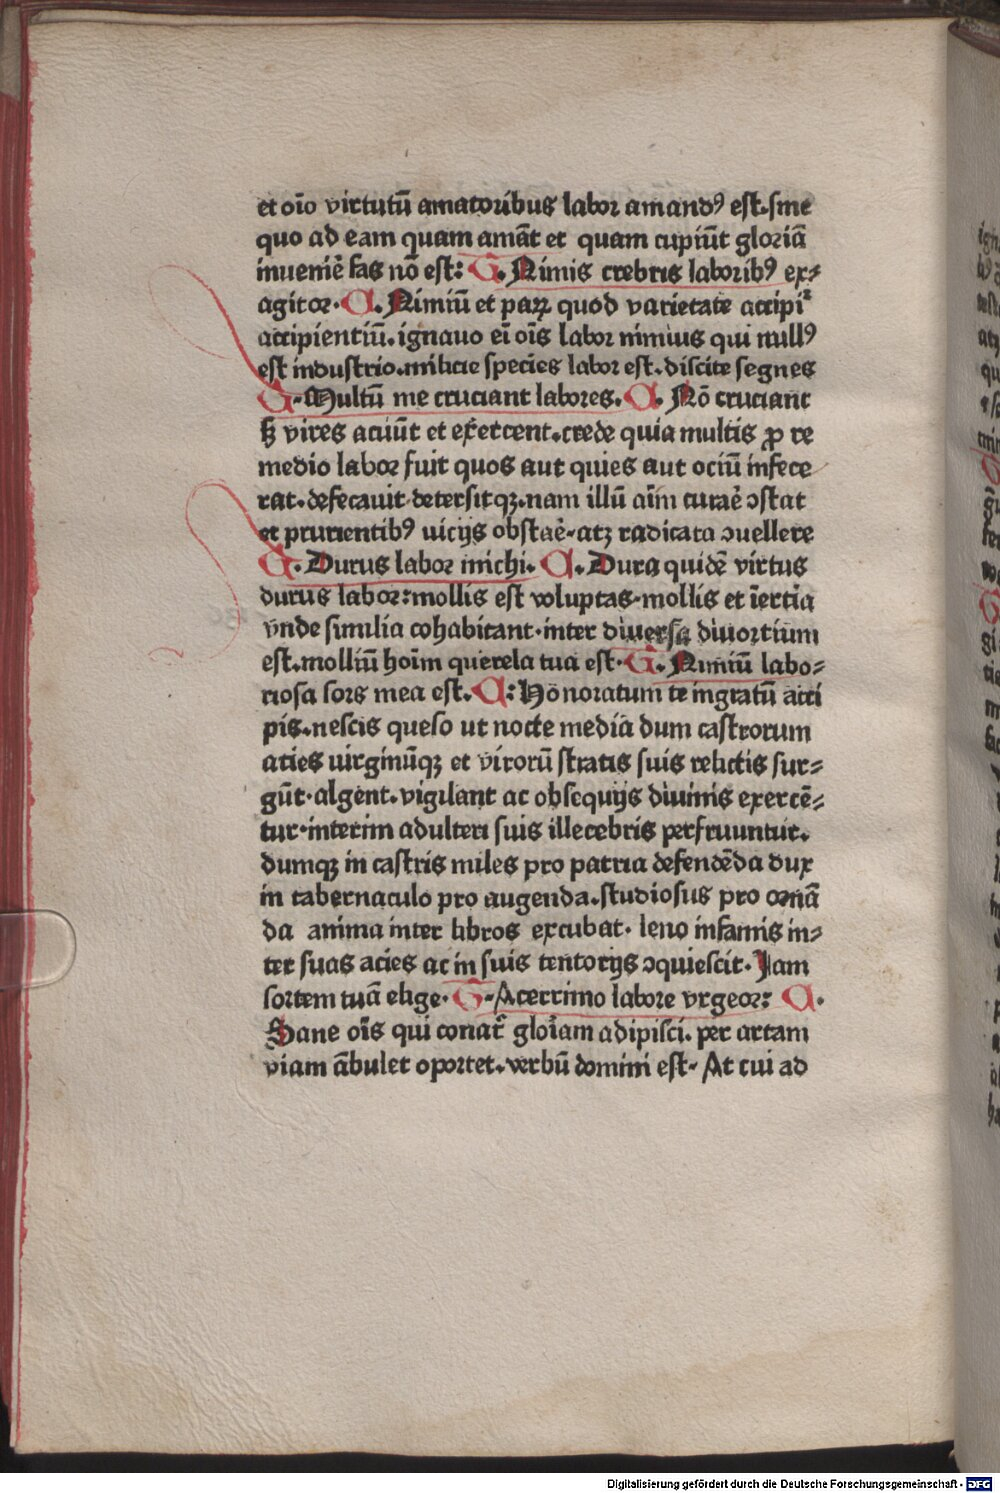 et oīo virtutū amatoribus labor amandꝰ est.sine
quo ad eam quam amāt et quam cupiūt gloriā
inuenīe fas nō est: G. Nimis crebris laboribꝰ ex⸗
agitor. A. Nimiū et parꝝ quod varietate accipi
accipientiū.ignauo ei oīs labor nimius qui nullꝰ
est industrio.milicie species labor est.discite segnes
G. Multū me cruciant labores. A. Nō cruciant
hꝫ vires acuūt et exercent.crede quia multis ꝓ re
medio labor fuit quos aut quies aut ociū infece
rat.defecauit detersitqꝫ.nam illū aīm curaē ꝯstat
et prurientibꝰ uicijs obstaē.atꝫ radicata ꝯuellere
G. Durus labor michi. A. Dura quidē virtus
durus labor:mollis est voluptas.mollis et īertīa
vnde similia cohabitant.inter diuersa diuortium
est.molliū hoīm querela tua est. G. Nimiū labo⸗
riosa sors mea est. A: Honoratum te ingratū acci
pis.nescis queso ut nocte media dum castrorum
acies uirginūqꝫ et virorū stratis suis relictis sur⸗
gūt.algent.vigilant ac obsequijs diuinis exercē⸗
tur.interim adulteri suis illecebris perfruuntur.
dumqꝫ in castris miles pro patria defendēda dux
in tabernaculo pro augenda.studiosus pro ornā
da anima inter libros excubat. leno infamis in⸗
ter suas acies ac in suis tentorijs ꝯquiescit. Iam
sortem tuā elige. G. Acerrimo labore vrgeor: A.
Sane oīs qui conat̄ gloīam adipisci. per artam
viam ābulet oportet.verbū domini est. At cui ad
Digitalisierung gefördert durch die Deutsche Forschungsgemeinschaft - DFG